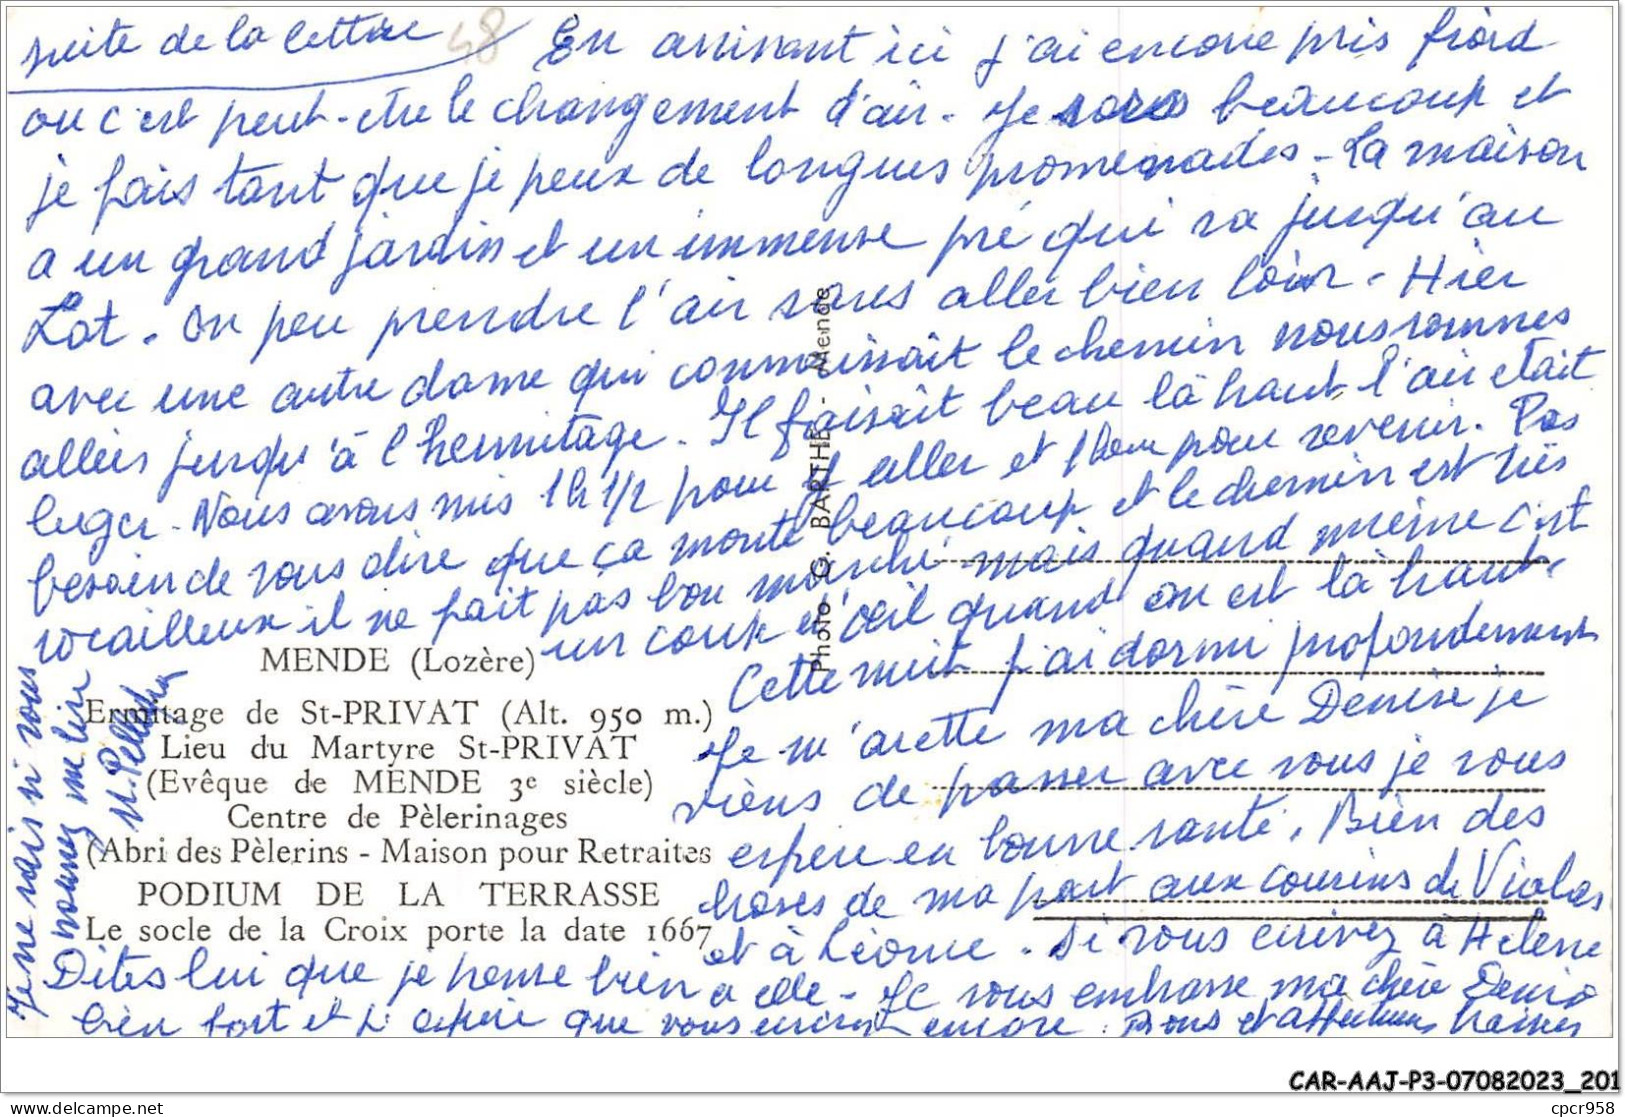 suite de la lettre 48 En arrivant ici j'ai encore pris froid
ou c'est peut-etre le changement d'air. Je sors beaucoup et
je fais tant que je peux de longues promenades - La maison
a un grand jardin et un immense pré qui va jusqu'au
Lot. On peu prendre l'air sans aller bien loin. Hier
avec une autre dame qui connaissait le chemin nous sommes
allées jusqu'à l'hermitage. Il faisait beau là haut l'air etait
leger. Nous avons mis 1h 1/2 pour y aller et 1 heure pour revenir. Pas
besoin de vous dire que ça monte beaucoup et le chemin est très
rocailleux il ne fait pas bon marché mais quand même c'est
un coup d'œil quand on est là haut.
Cette nuit j'ai dormi profondement
Je m'arette ma chère Denise je
viens de passer avec vous je vous
espere en bonne santé. Bien des
choses de ma part aux cousins de Violas
et à Léonie. Si vous ecrivez à Helene
Dites lui que je pense bien a elle - Je vous embrasse ma chère Denise
bien fort et j'espère que vous encore. Bons et affectueux baisers
Je ne sais si vous
pourrez me lire
MENDE (Lozère)
Ermitage de St-PRIVAT (Alt. 950 m.)
Lieu du Martyre St-PRIVAT
(Evêque de MENDE 3e siècle)
Centre de Pèlerinages
(Abri des Pèlerins - Maison pour Retraites
PODIUM DE LA TERRASSE
Le socle de la Croix porte la date 1667
Photo G. BARTHE - Mende
CAR-AAJ-P3-07082023_201
delcampe.net
cpcr958